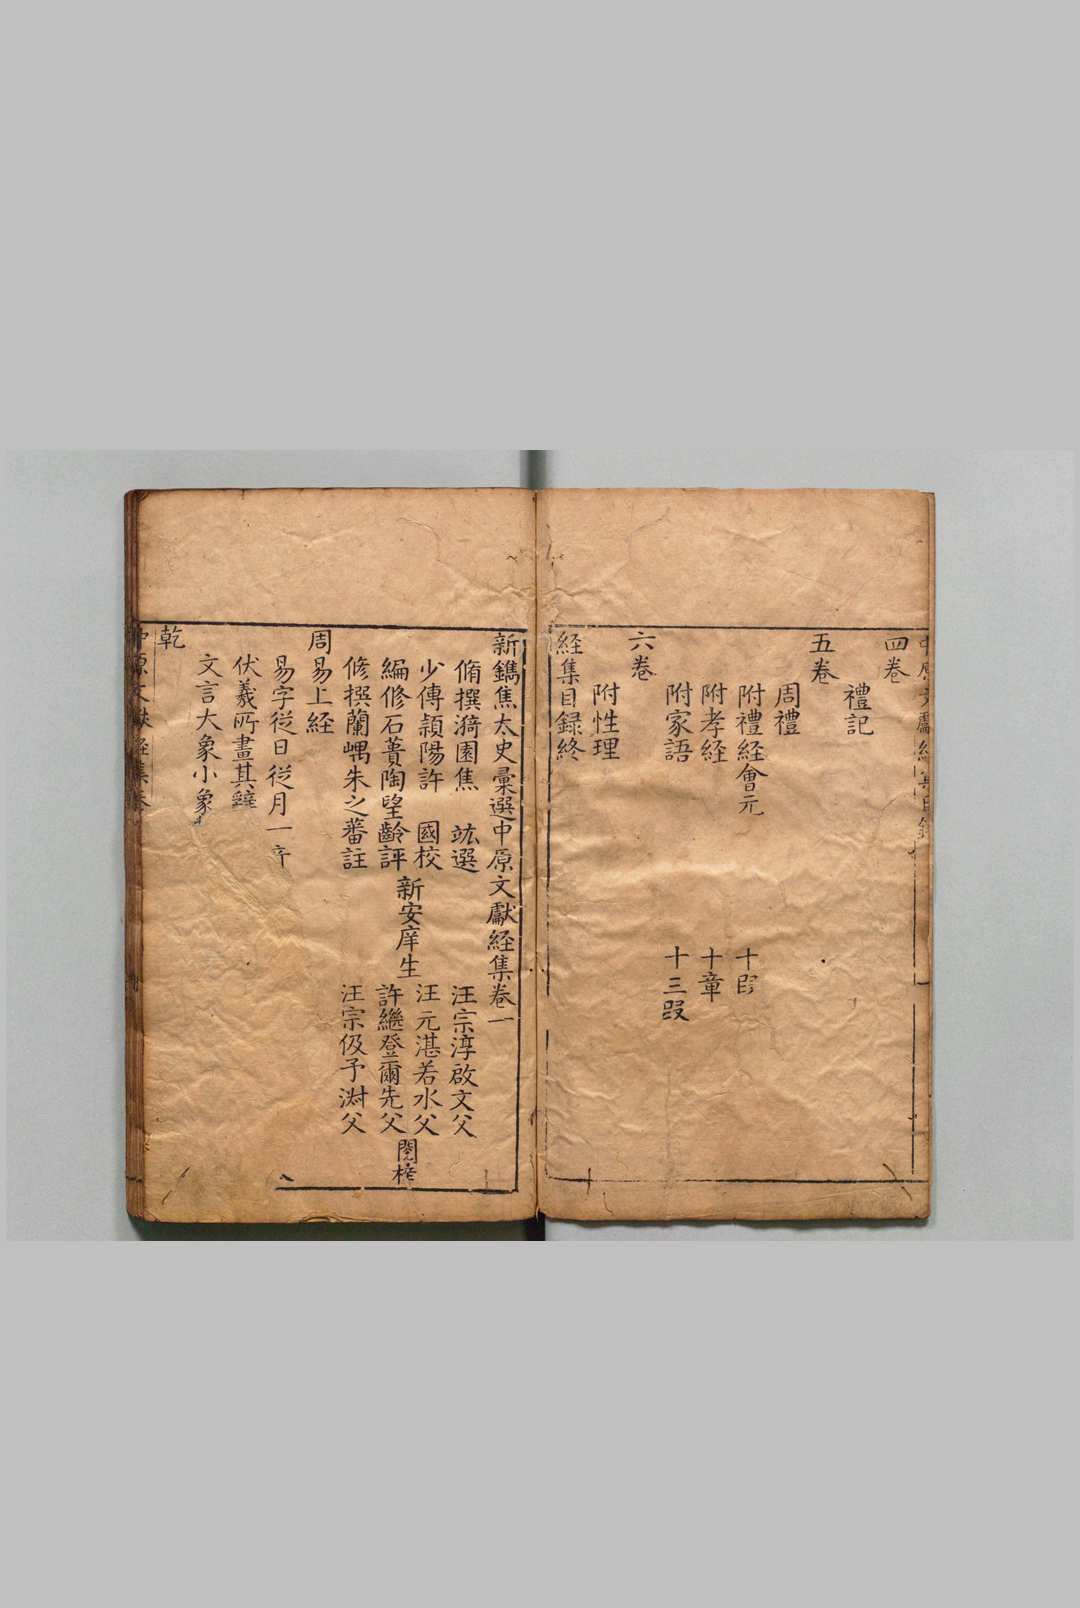 四卷
禮記
五卷
周禮
附禮經會元 十段
附孝経 十章
附家語 十三段
六卷
附性理
経集目録終
新鐫焦太史彙選中原文獻経集卷一
脩撰漪園焦 竑選
少傅穎陽許 國校
編修石蕢陶望齡評
脩撰蘭嵎朱之蕃註
新安庠生
汪宗淳啟文父
汪元湛若水父
許繼登爾先父
汪宗伋予淑父
閱梓
周易上経
易字従日従月一
伏羲所畫其辤
文言大象小象
乾
中原文獻経集卷